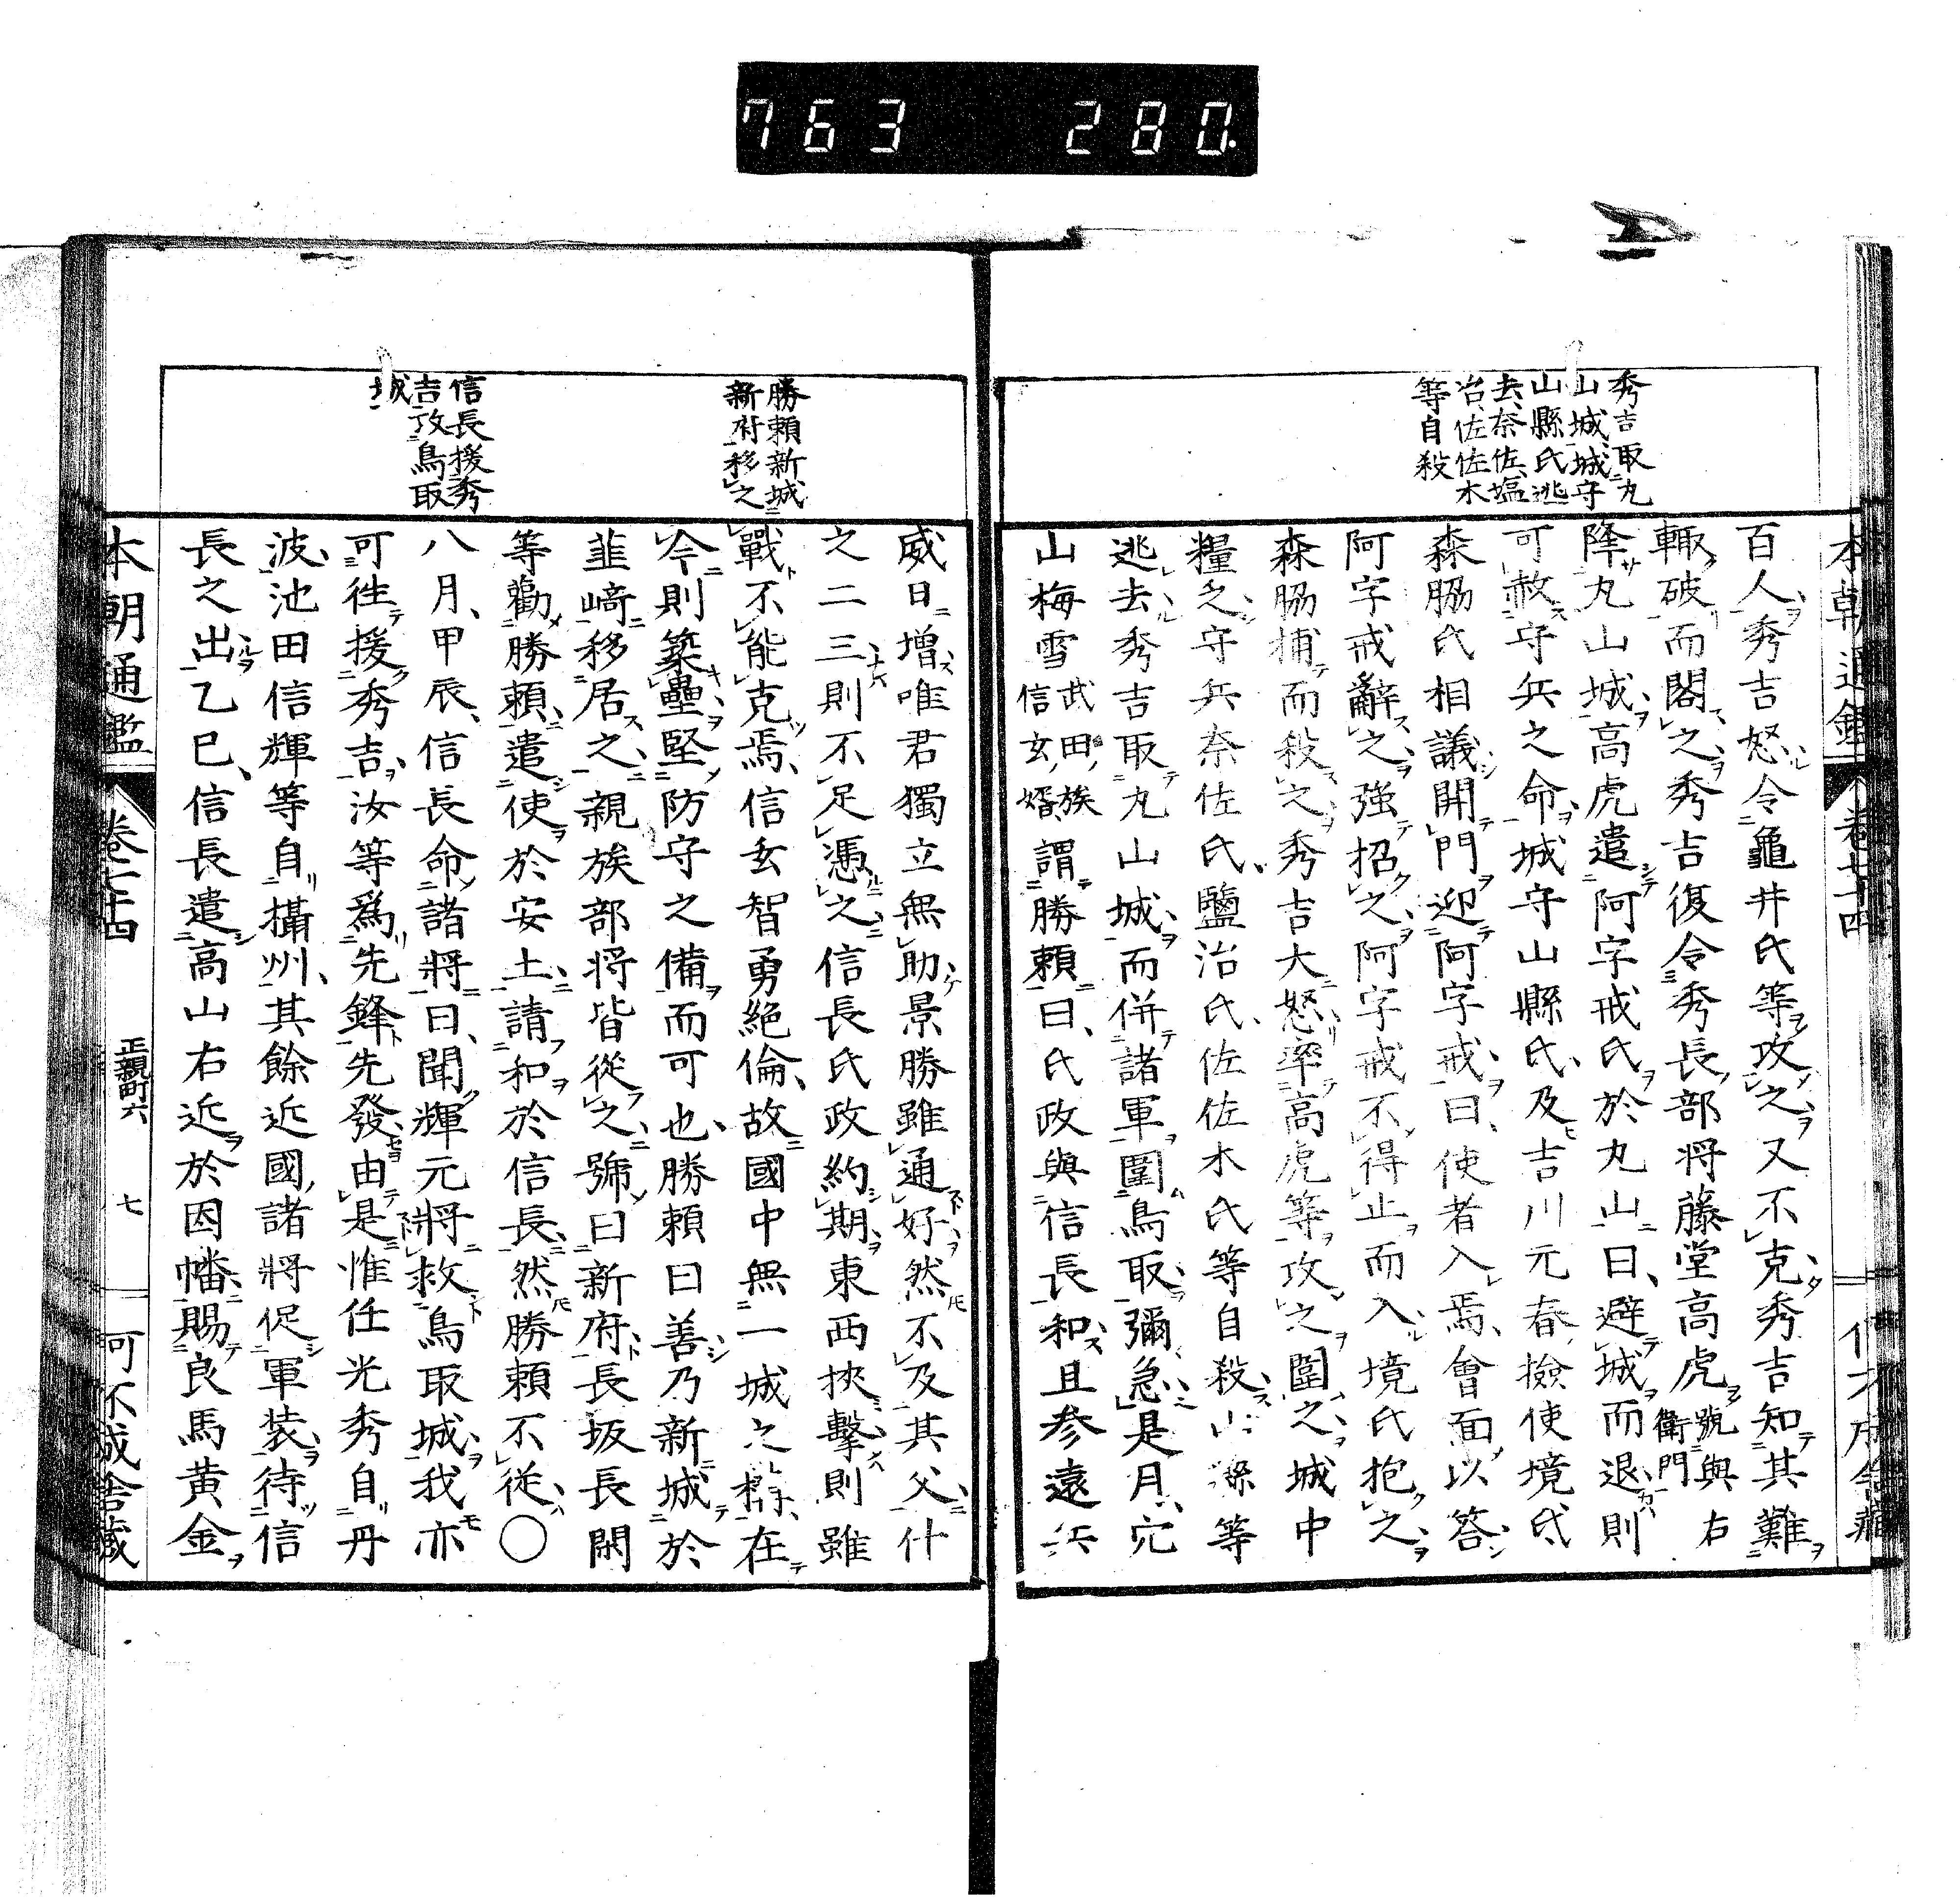 763 280
本朝通鑑 卷七十四
秀吉取丸
山城城守
山縣氏逃
去奈佐塩
冶佐佐木
等自殺
百人秀吉怒令龜井氏等攻之又不克秀吉知其難
輙破而閣之秀吉復令秀長部将藤堂高虎號與右衛門
降丸山城高虎遣阿字戒氏於丸山曰避城而退則
可赦守兵之命城守山縣氏及吉川元春檢使境氏
森脇氏相議開門迎阿字戒曰使者入焉會面以答
阿字戒辭之強招之阿字戒不得止而入境氏抱之
森脇捕而殺之秀吉大怒率高虎等攻之圍之城中
糧乏守兵奈佐氏鹽冶氏佐佐木氏等自殺山縣等
逃去秀吉取丸山城而併諸軍圍鳥取彌急是月穴
山梅雪武田族信玄婿謂勝賴曰氏政與信長和且参遠兵
勝賴新城
新府移之
信長援秀
吉攻鳥取
城
威日增唯君獨立無助景勝雖通好然不及其父什
之二三則不足憑之信長氏政約期東西挾擊則雖
戰不能克焉信玄智勇絕倫故國中無一城之在
今則築壘堅防守之備而可也勝賴曰善乃新城於
韮﨑移居之親族部将皆從之號曰新府長坂長閑
等勸勝賴遣使於安土請和於信長然勝賴不從〇
八月甲辰信長命諸將曰聞輝元將救鳥取城我亦
可徃援秀吉汝等爲先鋒先發由是惟任光秀自丹
波池田信輝等自攝州其餘近國諸將促軍装待信
長之出乙巳信長遣高山右近於因幡賜良馬黄金
本朝通鑑 卷七十四 正親町六 七 可不成舎藏